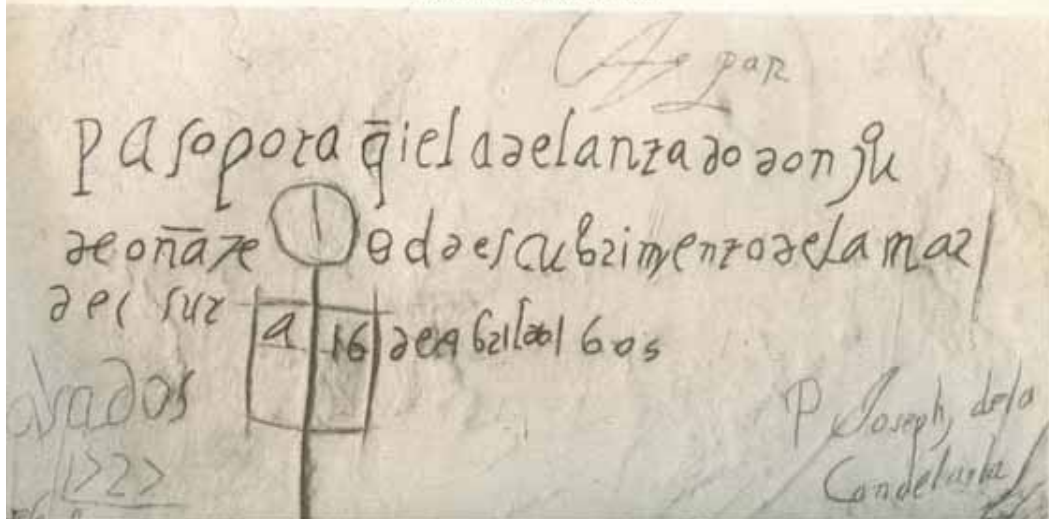 par
pasoporaq̄i el adelantado don jũ
de oñate descubrimento de la mar
del sur a 16 de abril 1605
P Joseph, de la
Candelaria